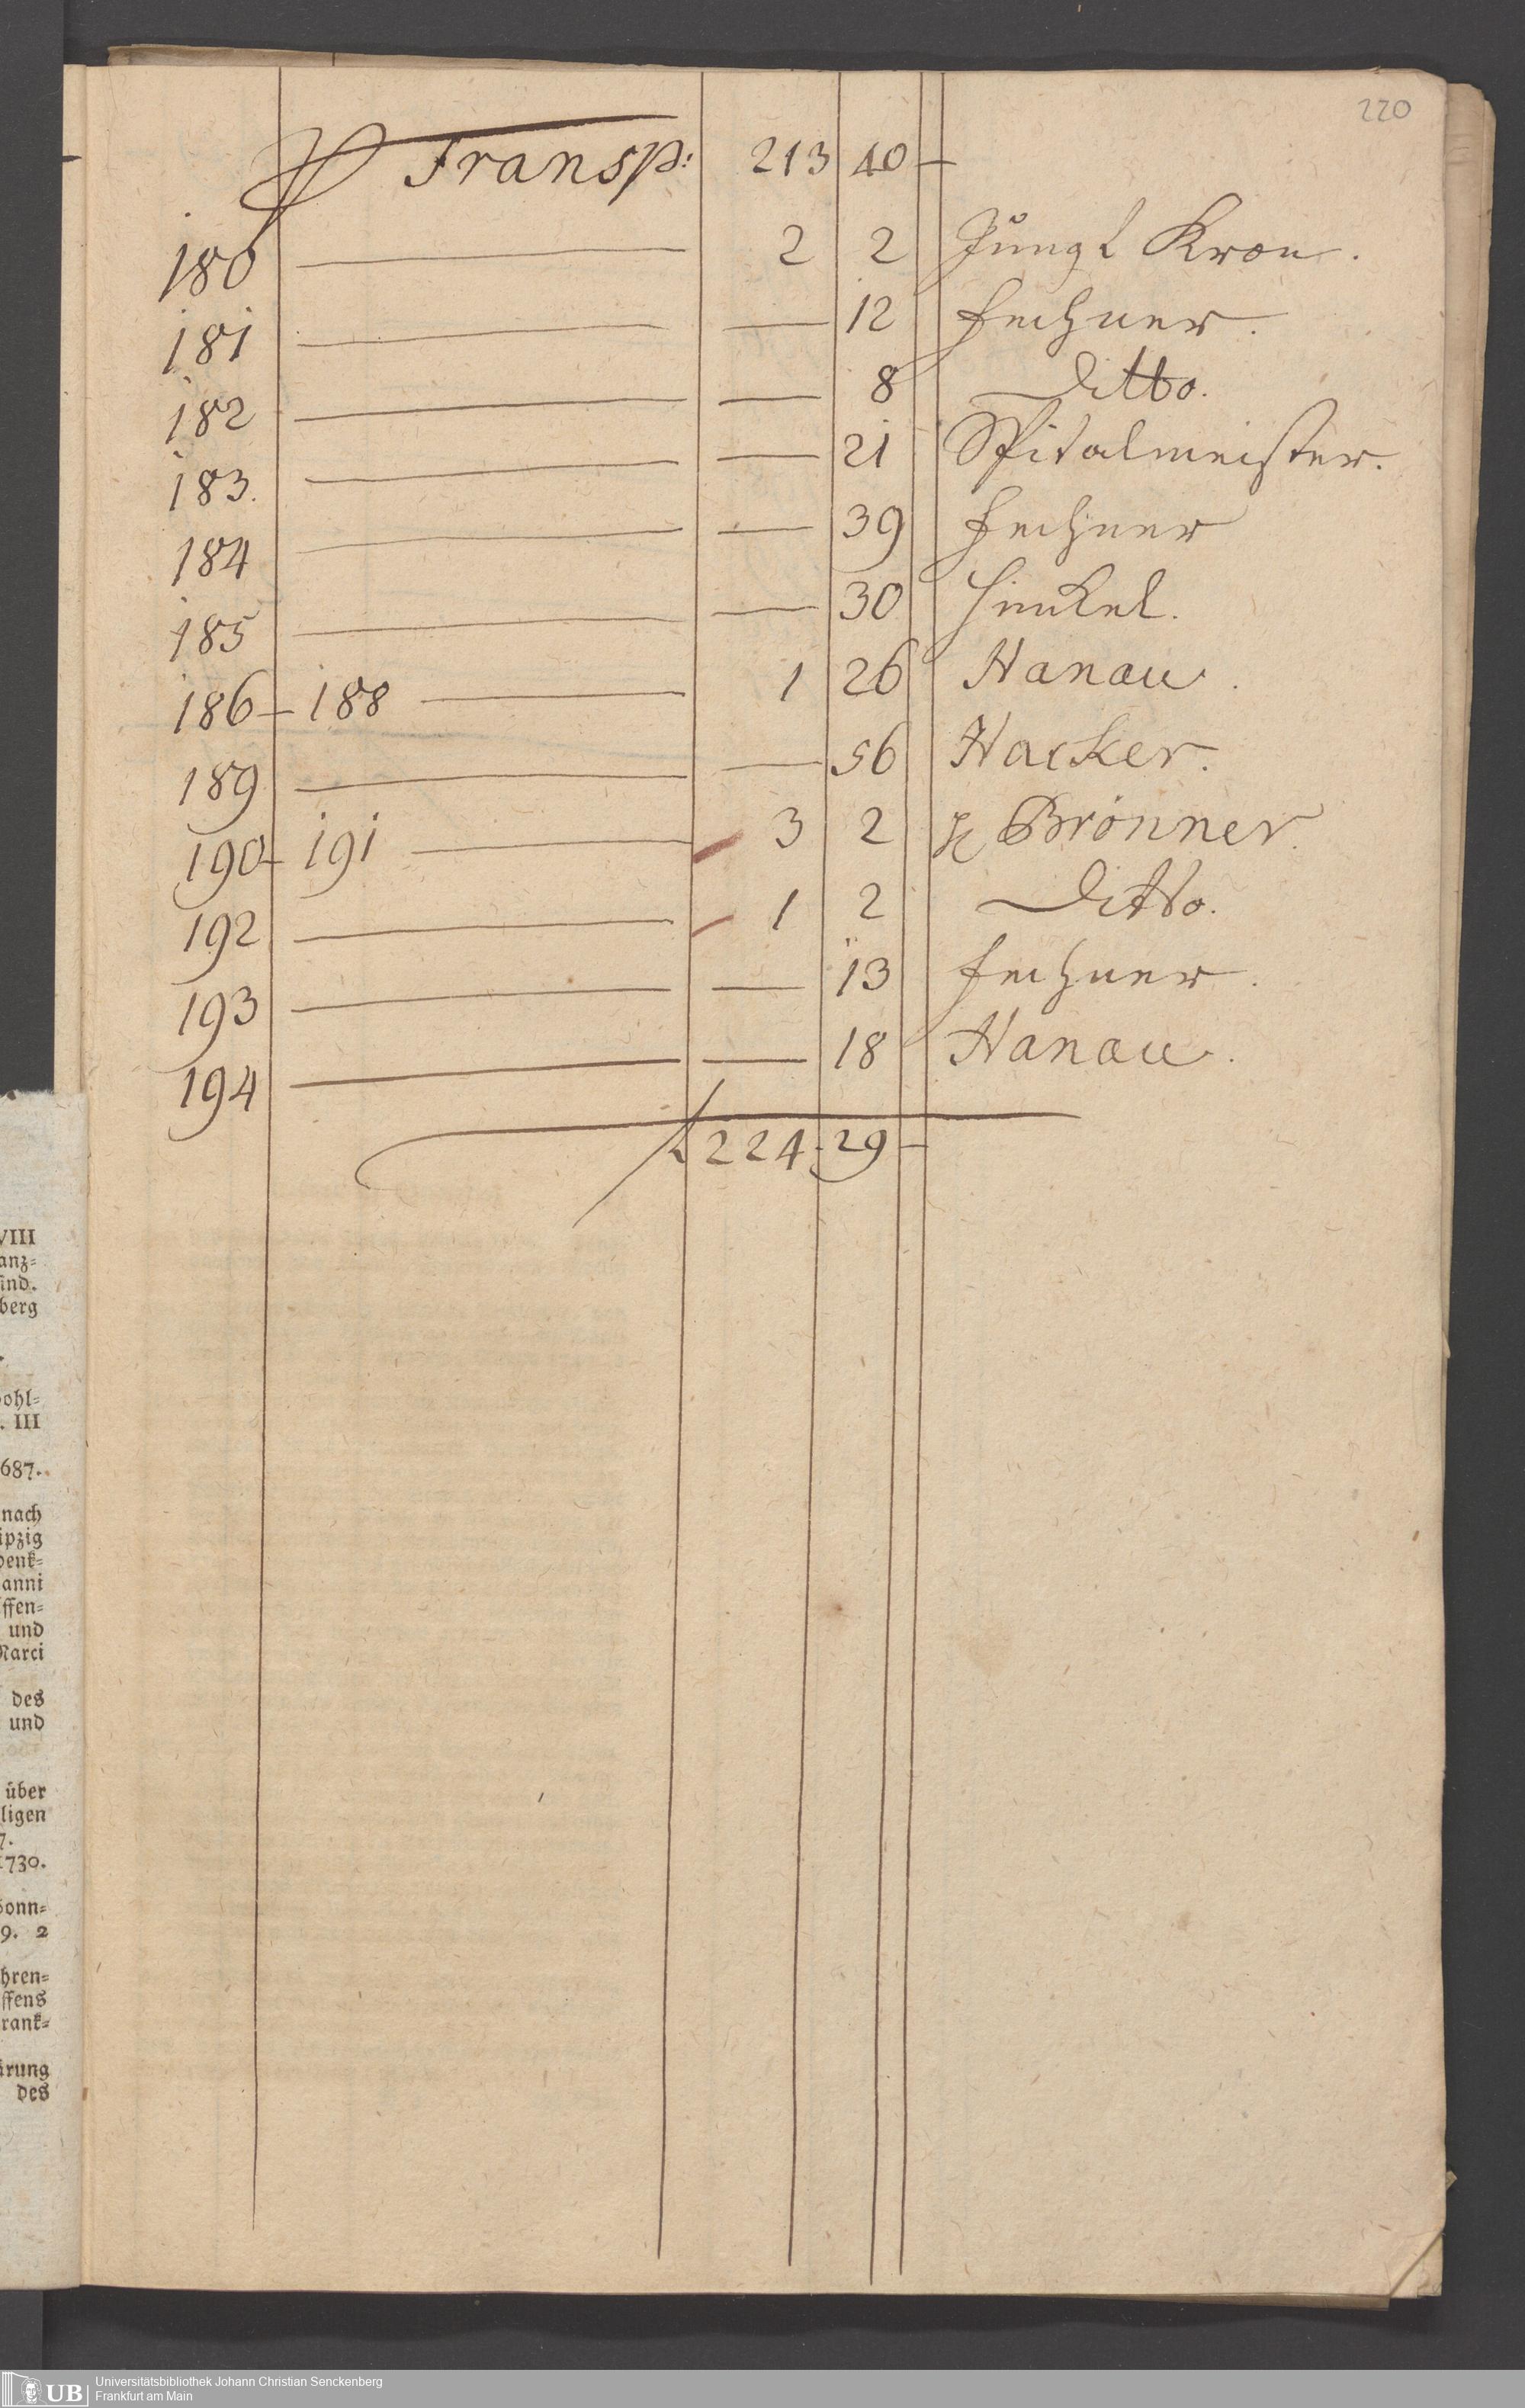 220
Transp: 213 40 —
180 — 2 2 Jungl Kron.
181 — — 12 Fechner.
182 — — 8 Ditto.
183. — — 21 Spitalmeister.
184 — — 39 Fechner
185 — — 30 Hinkel.
186 – 188 — 1 26 Hanau.
189 — — 56 Hacker.
190 – 191 — 3 2 Brönner.
192 — 1 2 Ditto.
193 — — 13 Fechner.
194 — — 18 Hanau.
224 . 29 —
VIII
anz=
sind.
berg
ohl=
. III
687.
nach
ipzig
denk=
anni
ffen=
und
Marci
des
und
über
ligen
7.
1730.
Sonn=
9. 2
hren=
ffens
rank=
ärung
des
UB
Universitätsbibliothek Johann Christian Senckenberg
Frankfurt am Main